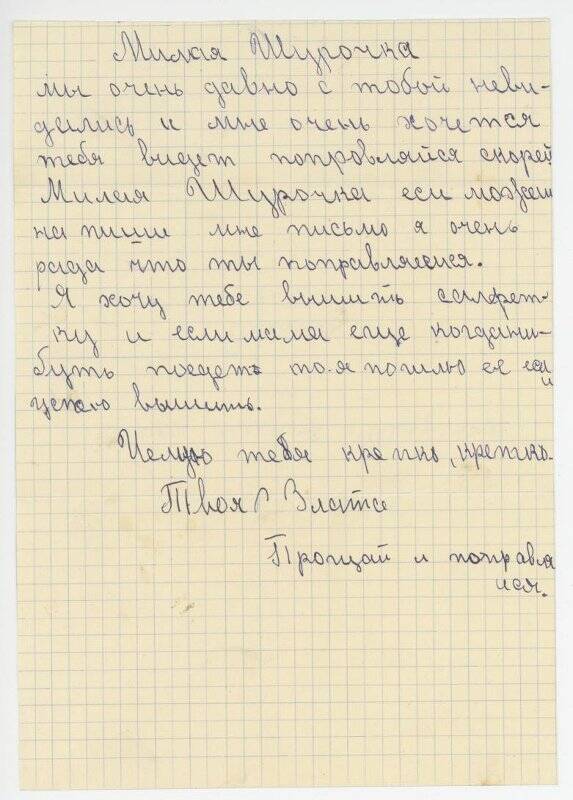 Милая Шурочка
мы очень давно с тобой неви-
дались и мне очень хочется
тебя видет попровляйся скорей
Милая Шурочка еси можеш
на пиши мне письмо я очень
рада что ты поправляешся.
Я хочу тебе вышить салфет-
ку и если мама еще когдани-
буть поедет то я пошлю ее если
успею вышить.
Целую тебя крепко, крепко.
Твоя Злата
Прощай и поправля
йся.